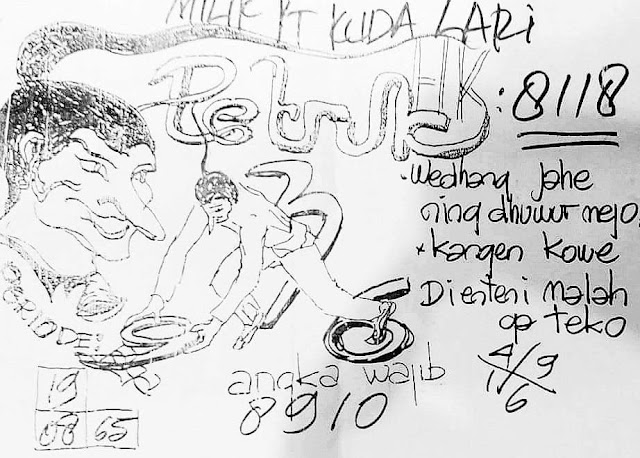 MILIK PT KUDA LARI
Petruk
HK : 8118
3
• Wedhang Jahe
ning dhuwur mejo,
* Kangen Kowe
Dienteni Malah
ga teko
PERIODE:
19
08 65
angka wajib
8910
4/9
1 6